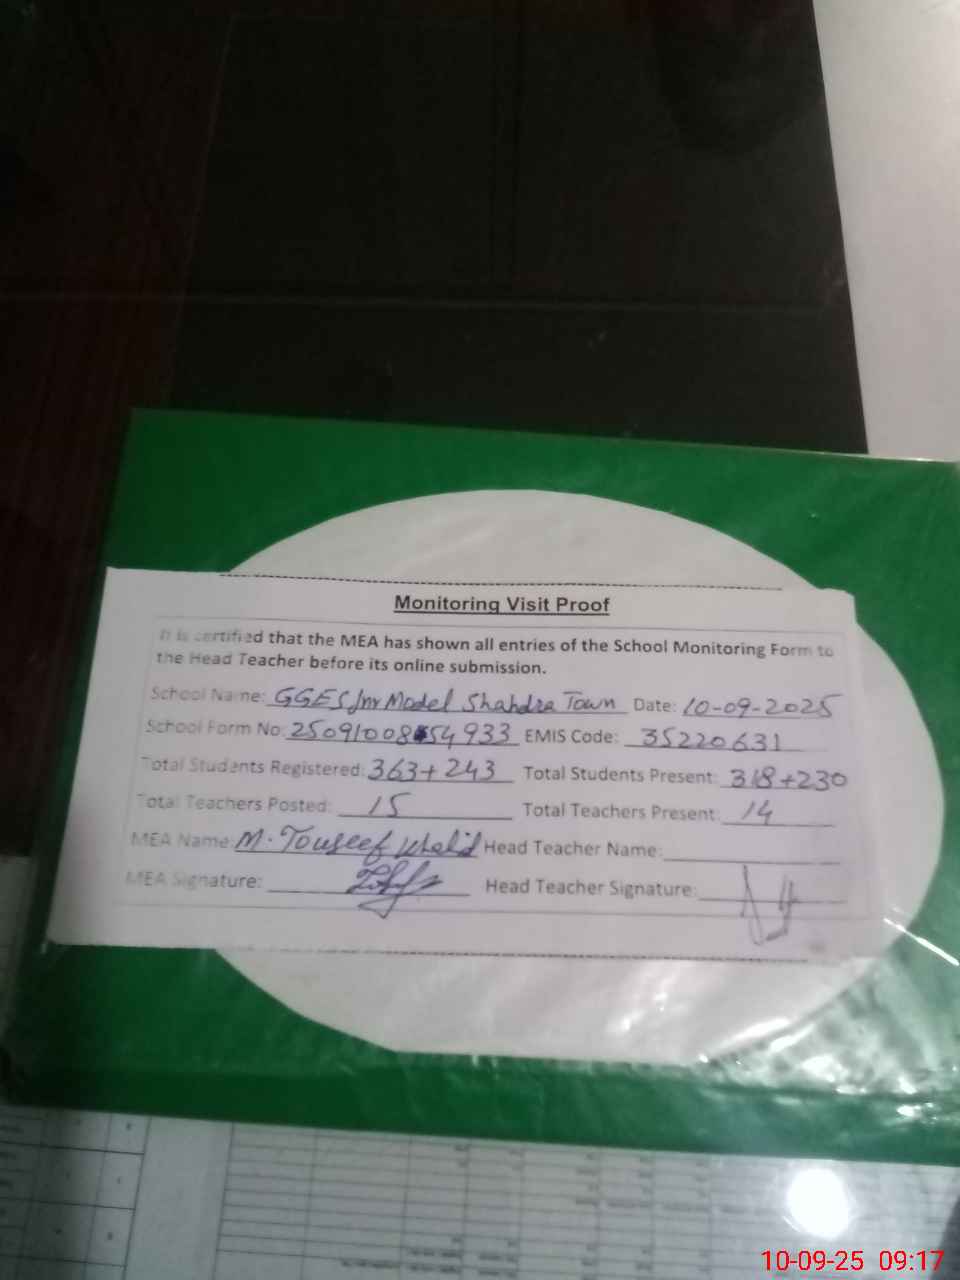 Monitoring Visit Proof
It is certified that the MEA has shown all entries of the School Monitoring Form to
the Head Teacher before its online submission.
School Name: GGES Jnr Model Shahdra Town Date: 10-09-2025
School Form No: 25091008 54933 EMIS Code: 35220631
Total Students Registered: 363+243 Total Students Present: 318+230
Total Teachers Posted: 15 Total Teachers Present: 14
MEA Name: M. Touseef Khalid Head Teacher Name:
MEA Signature: Head Teacher Signature:
10-09-25 09:17